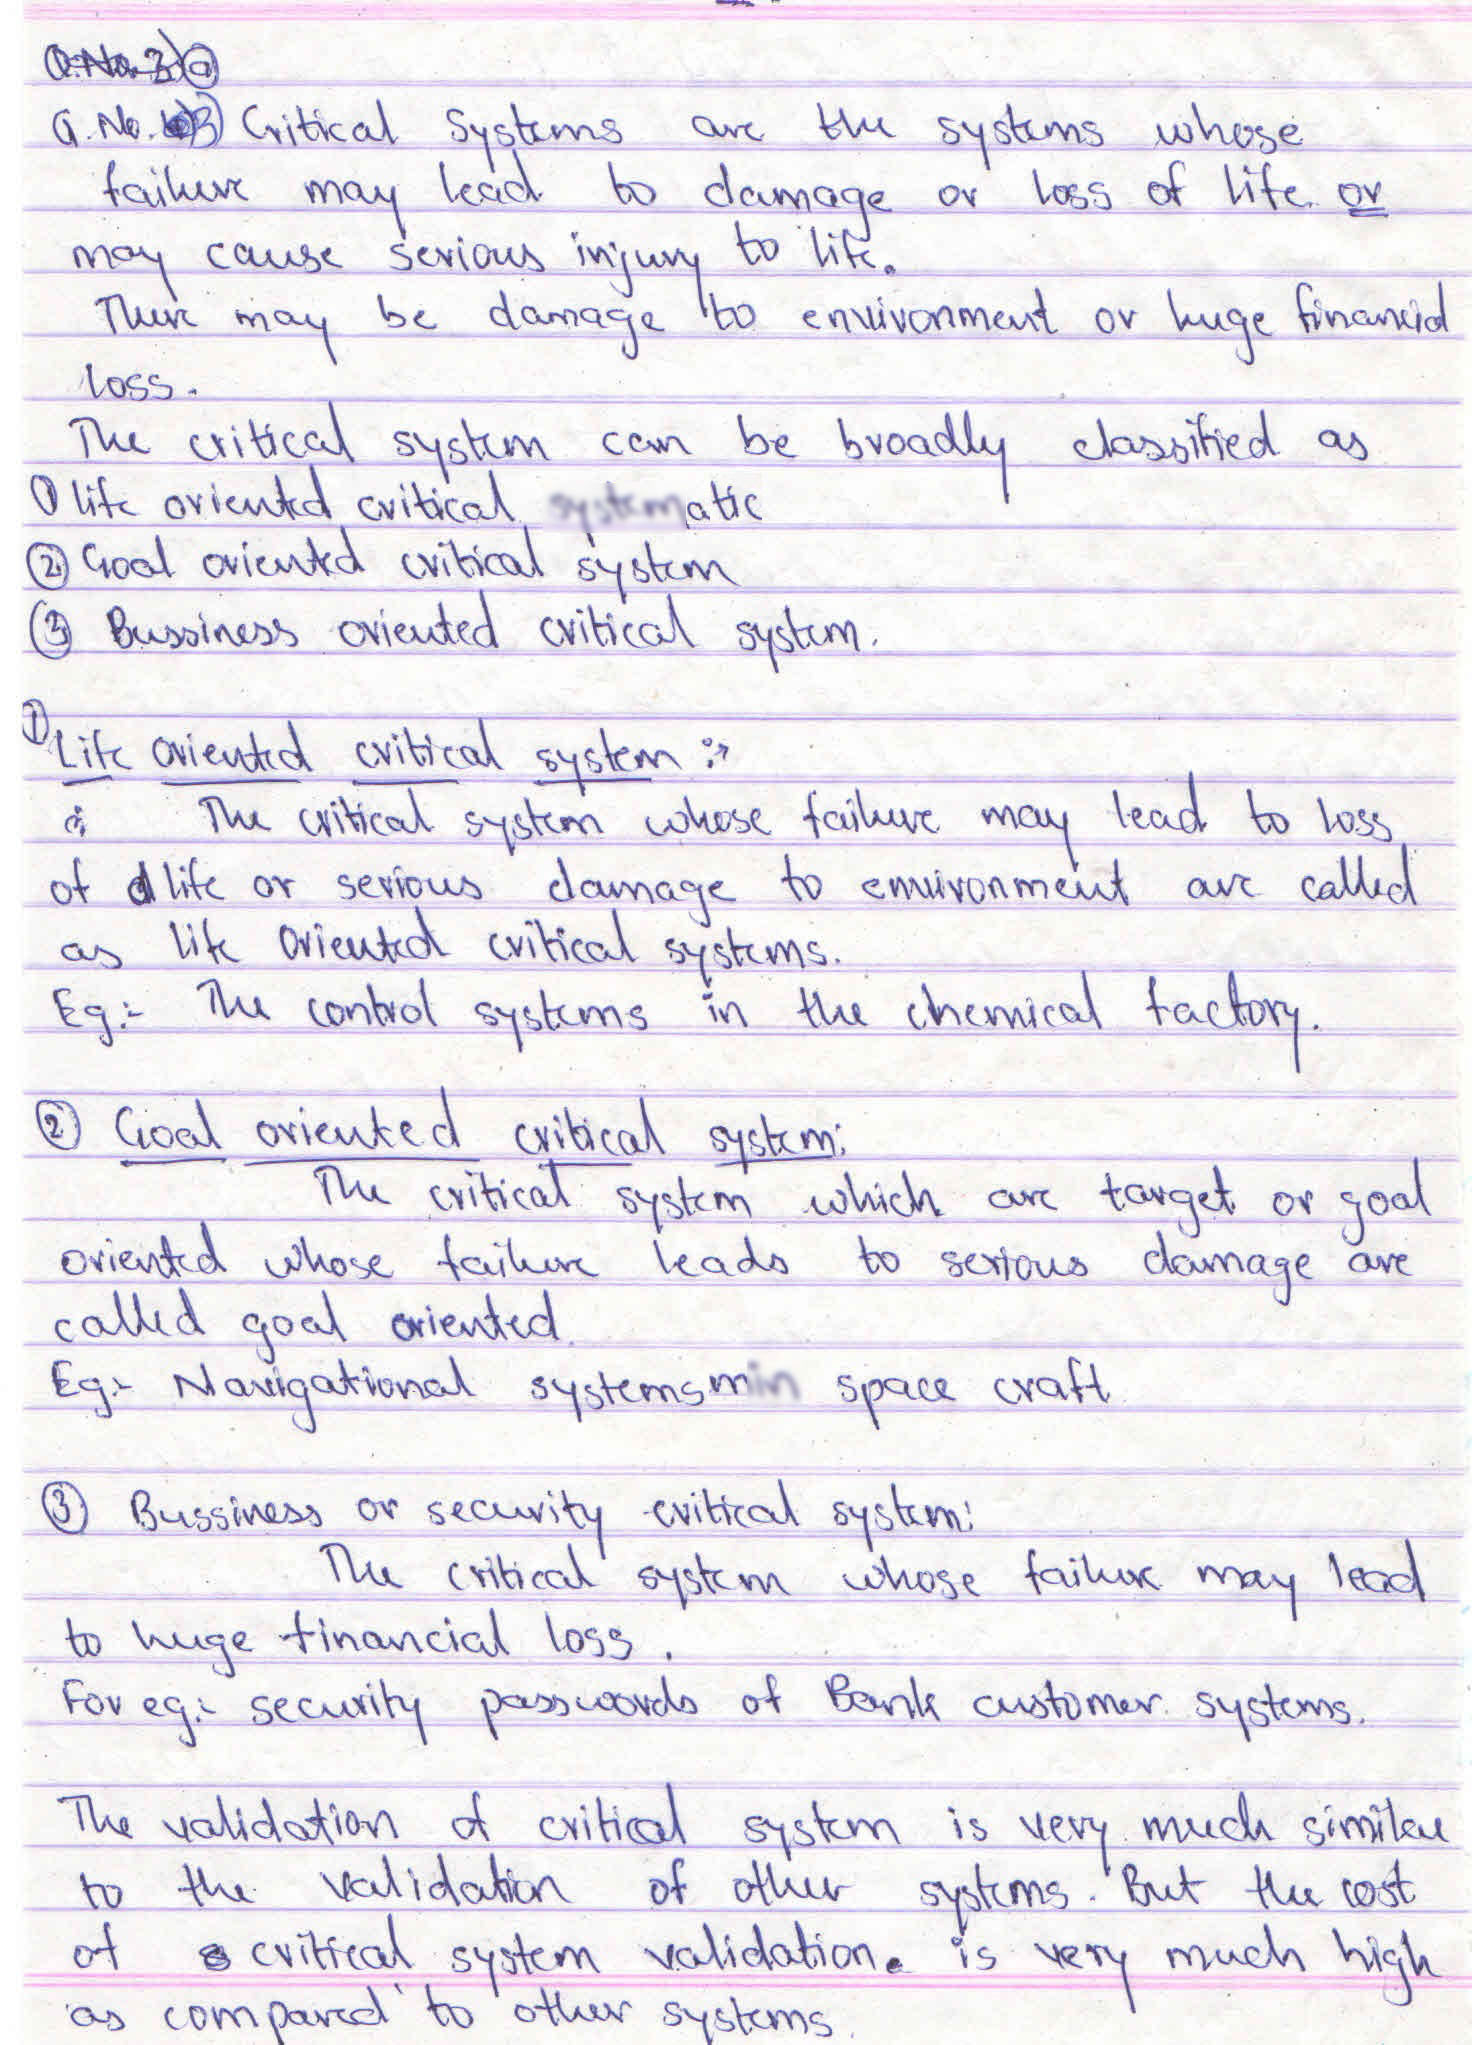 Q.No. 3) a
Q.No. 3) Critical Systems are the systems whose
failure may lead to damage or loss of life or
may cause serious injury to life.
There may be damage to environment or huge financial
loss.
The critical system can be broadly classified as
① life oriented critical atic
② Goal oriented critical system
③ Bussiness oriented critical system.
① Life oriented critical system :→
The critical system whose failure may lead to loss
of life or serious damage to environment are called
as life oriented critical systems.
Eg:- The control systems in the chemical factory.
② Goal oriented critical system:
The critical system which are target or goal
oriented whose failure leads to serious damage are
called goal oriented
Eg:- Navigational systems space craft
③ Bussiness or security critical system:
The critical system whose failure may lead
to huge financial loss.
For eg:- security passwords of Bank customer systems.
The validation of critical system is very much similar
to the validation of other systems. But the cost
of critical system validation. is very much high
as compared to other systems.